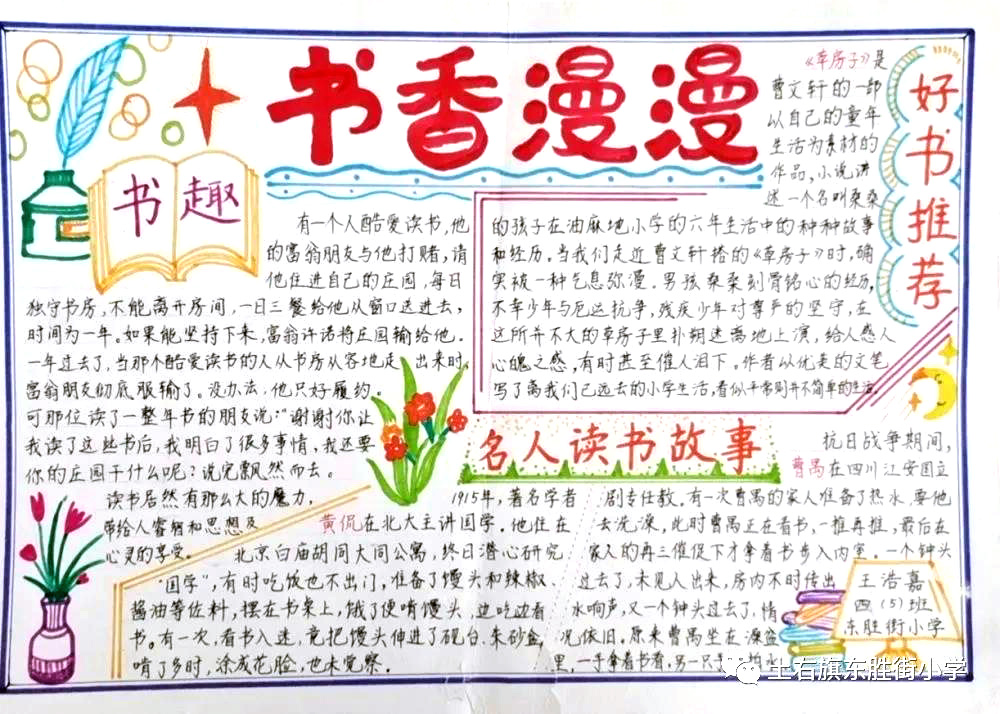 书香漫漫
书趣
有一个人酷爱读书,他
的富翁朋友与他打赌,请
他住进自己的庄园,每日
独守书房,不能离开房间,一日三餐给他从窗口送进去,
时间为一年。如果能坚持下来,富翁许诺将庄园输给他。
一年过去了,当那个酷爱读书的人从书房从容地走出来时,
富翁朋友彻底服输了。没办法,他只好履约。
可那位读了一整年书的朋友说:“谢谢你让
我读了这些书后,我明白了很多事情,我还要
你的庄园干什么呢?说完飘然而去。
读书居然有那么大的魔力,
带给人睿智和思想及
心灵的享受。
好书推荐
《草房子》是
曹文轩的一部
以自己的童年
生活为素材的
作品,小说讲
述一个名叫桑桑
的孩子在油麻地小学的六年生活中的种种故事
和经历。当我们走近曹文轩搭的《草房子》时,确
突被一种气息弥漫。男孩桑桑刻骨铭心的经历,
不幸少年与厄运抗争,残疾少年对尊严的坚守,在
这所并不大的草房子里扑朔迷离地上演,给人感人
心魄之感,有时甚至催人泪下。作者以优美的文笔
写了离我们已远去的小学生活,看似平常则并不简单的生活。
名人读书故事
1915年,著名学者
黄侃在北大主讲国学。他住在
北京白庙胡同大同公寓,终日潜心研究
“国学”,有时吃饭也不出门,准备了馒头和辣椒、
酱油等佐料,摆在书桌上,饿了便啃馒头,边吃边看
书。有一次,看书入迷,竟把馒头伸进了砚台、朱砂盒,
啃了多时,涂成花脸,也未觉察。
抗日战争期间,
曹禺在四川江安国立
剧专任教。有一次曹禺的家人准备了热水,要他
去洗澡,此时曹禺正在看书,一推再推,最后在
家人的再三催促下才拿着书步入内室。一个钟头
过去了,未见人出来,房内不时传出
水响声,又一个钟头过去了,情
况依旧。原来曹禺坐在澡盆
里,一手拿着书看,另一只手
王浩嘉
四(5)班
东胜街小学
土右旗东胜街小学